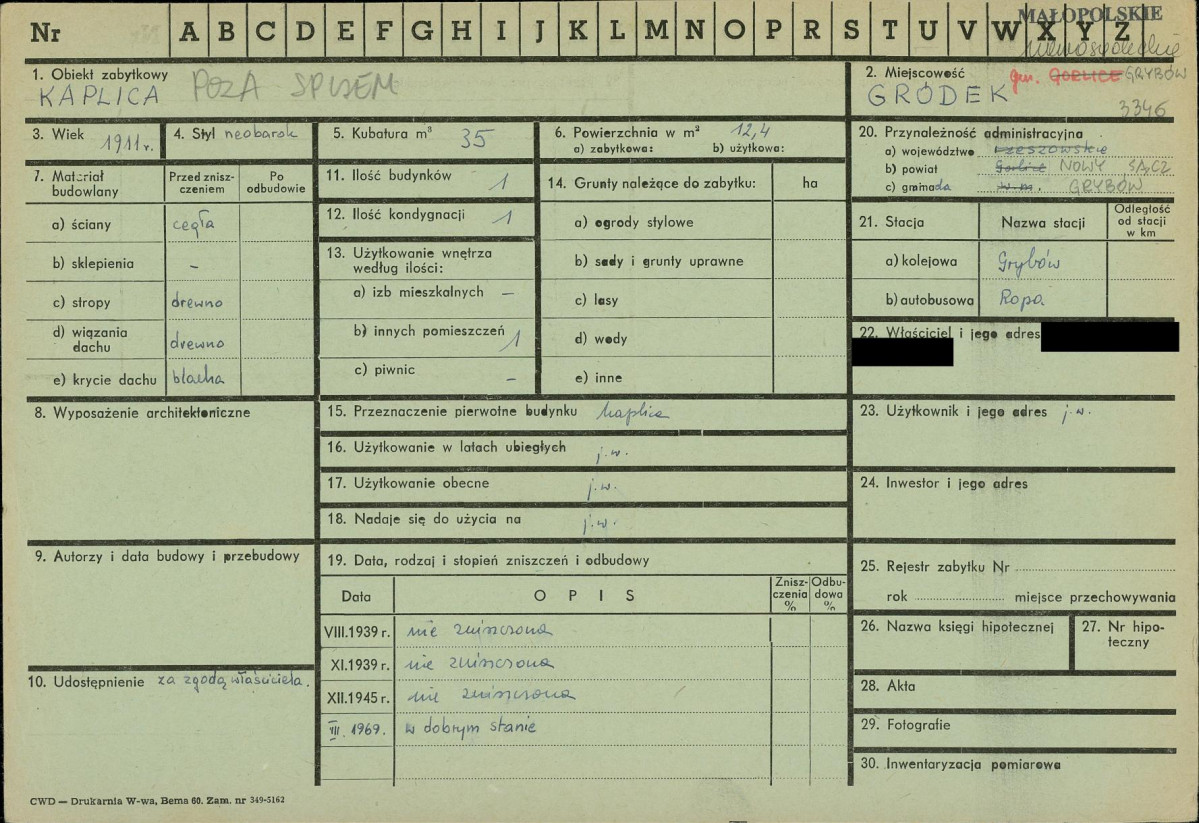 Nr A B C D E F G H I J K L M N O P R S T U V W X Y Z
MAŁOPOLSKIE
nowosądeckie
1. Obiekt zabytkowy
KAPLICA POZA SPISEM
2. Miejscowość gm. GORLICE GRYBÓW
GRÓDEK
3346
3. Wiek 1911 r.
4. Styl neobarok
5. Kubatura m³ 35
6. Powierzchnia w m² 12,4
a) zabytkowa: b) użytkowa:
7. Materiał budowlany
Przed znisz-
czeniem
Po
odbudowie
a) ściany cegła
b) sklepienia –
c) stropy drewno
d) wiązania
dachu drewno
e) krycie dachu blacha
8. Wyposażenie architektoniczne
9. Autorzy i data budowy i przebudowy
10. Udostępnienie za zgodą właściciela.
11. Ilość budynków 1
12. Ilość kondygnacji 1
13. Użytkowanie wnętrza
według ilości:
a) izb mieszkalnych –
b) innych pomieszczeń 1
c) piwnic –
14. Grunty należące do zabytku: ha
a) ogrody stylowe
b) sady i grunty uprawne
c) lasy
d) wody
e) inne
15. Przeznaczenie pierwotne budynku kaplica
16. Użytkowanie w latach ubiegłych j.w.
17. Użytkowanie obecne j.w.
18. Nadaje się do użycia na j.w.
19. Data, rodzaj i stopień zniszczeń i odbudowy
Data OPIS
Znisz-
czenia
%
Odbu-
dowa
%
VIII.1939 r. nie zniszczona
XI.1939 r. nie zniszczona
XII.1945 r. nie zniszczona
III. 1969. w dobrym stanie
20. Przynależność administracyjna
a) województwo rzeszowskie
b) powiat Gorlice NOWY SĄCZ
c) gromada w m. GRYBÓW
21. Stacja Nazwa stacji
Odległość
od stacji
w km
a) kolejowa Grybów
b) autobusowa Ropa
22. Właściciel i jego adres
23. Użytkownik i jego adres j.w.
24. Inwestor i jego adres
25. Rejestr zabytku Nr
rok miejsce przechowywania
26. Nazwa księgi hipotecznej
27. Nr hipo-
teczny
28. Akta
29. Fotografie
30. Inwentaryzacja pomiarowa
CWD — Drukarnia W-wa, Bema 60. Zam. nr 349-5162